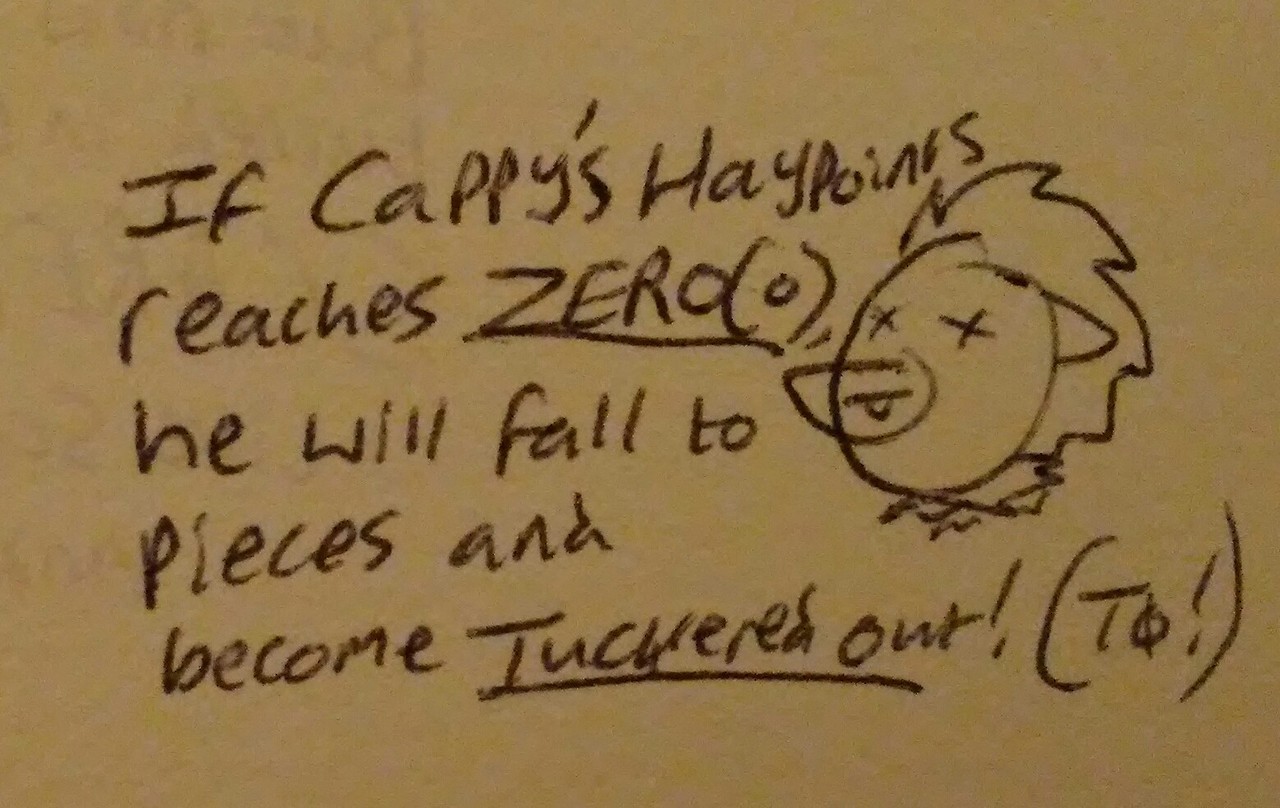 If Cappy's Haypoints
reaches ZERO(0),
he will fall to
pieces and
become Tuckered out! (TO!)